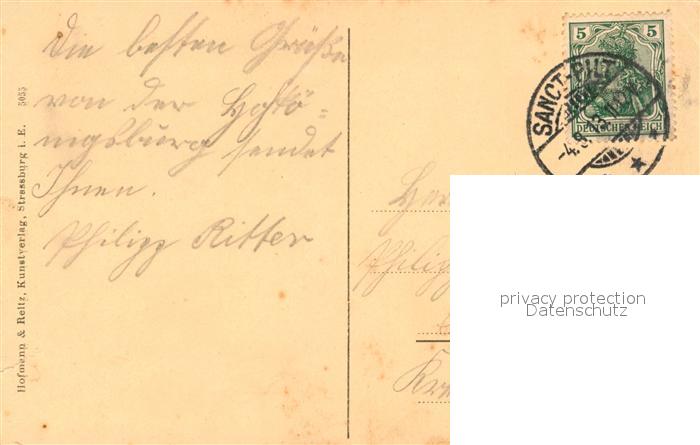 Die besten Grüße
von der Hohkö=
nigsburg sendet
Ihnen.
Philipp Ritter
Hofmann & Reitz, Kunstverlag, Strassburg i. E. 5055
5 5
DEUTSCHES REICH
SANCT-PILT
-4.9.
Philipp
privacy protection
Datenschutz